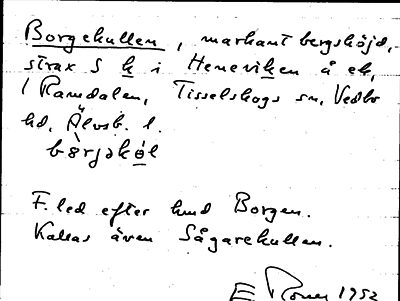 Borgekullen, markant bergshöjd,
strax S k i Heneviken å ek,
l Ramdalen, Tisselskogs sn, Vedbo
hd, Älvsb. l.
børjəkøl
F.led efter hmd Borgen.
Kallas även Sågarekullen.
1952